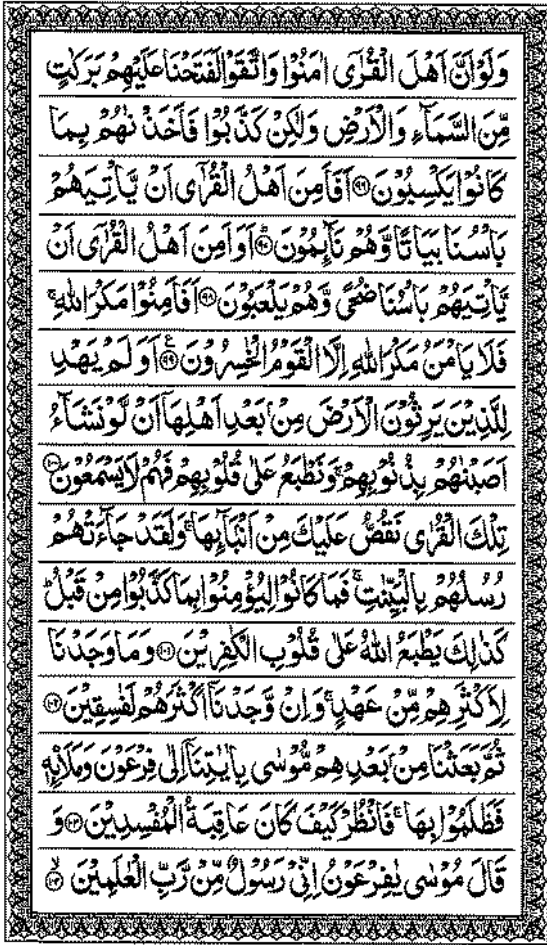 وَلَوْ اَنَّ اَهْلَ الْقُرٰۤى اٰمَنُوْا وَاتَّقَوْا لَفَتَحْنَا عَلَيْهِمْ بَرَكٰتٍ
مِّنَ السَّمَآءِ وَالْاَرْضِ وَلٰكِنْ كَذَّبُوْا فَاَخَذْنٰهُمْ بِمَا
كَانُوْا يَكْسِبُوْنَ ﴿۹۶﴾ اَفَاَمِنَ اَهْلُ الْقُرٰۤى اَنْ يَّاْتِيَهُمْ
بَاْسُنَا بَيَاتًا وَّهُمْ نَآئِمُوْنَ ﴿۹۷﴾ اَوَاَمِنَ اَهْلُ الْقُرٰۤى اَنْ
يَّاْتِيَهُمْ بَاْسُنَا ضُحًى وَّهُمْ يَلْعَبُوْنَ ﴿۹۸﴾ اَفَاَمِنُوْا مَكْرَ اللّٰهِ ۚ
فَلَا يَاْمَنُ مَكْرَ اللّٰهِ اِلَّا الْقَوْمُ الْخٰسِرُوْنَ ﴿۹۹﴾ اَوَلَمْ يَهْدِ
لِلَّذِيْنَ يَرِثُوْنَ الْاَرْضَ مِنْۢ بَعْدِ اَهْلِهَاۤ اَنْ لَّوْ نَشَآءُ
اَصَبْنٰهُمْ بِذُنُوْبِهِمْ ۚ وَنَطْبَعُ عَلٰى قُلُوْبِهِمْ فَهُمْ لَا يَسْمَعُوْنَ ﴿۱۰۰﴾
تِلْكَ الْقُرٰى نَقُصُّ عَلَيْكَ مِنْ اَنْۢبَآئِهَا ۚ وَلَقَدْ جَآءَتْهُمْ
رُسُلُهُمْ بِالْبَيِّنٰتِ ۚ فَمَا كَانُوْا لِيُؤْمِنُوْا بِمَا كَذَّبُوْا مِنْ قَبْلُ ؕ
كَذٰلِكَ يَطْبَعُ اللّٰهُ عَلٰى قُلُوْبِ الْكٰفِرِيْنَ ﴿۱۰۱﴾ وَمَا وَجَدْنَا
لِاَكْثَرِهِمْ مِّنْ عَهْدٍ ۚ وَاِنْ وَّجَدْنَاۤ اَكْثَرَهُمْ لَفٰسِقِيْنَ ﴿۱۰۲﴾
ثُمَّ بَعَثْنَا مِنْۢ بَعْدِهِمْ مُّوْسٰى بِاٰيٰتِنَاۤ اِلٰى فِرْعَوْنَ وَمَلَا۟ئِهٖ
فَظَلَمُوْا بِهَا ۚ فَانْظُرْ كَيْفَ كَانَ عَاقِبَةُ الْمُفْسِدِيْنَ ﴿۱۰۳﴾ وَ
قَالَ مُوْسٰى يٰفِرْعَوْنُ اِنِّيْ رَسُوْلٌ مِّنْ رَّبِّ الْعٰلَمِيْنَ ﴿۱۰۴﴾ ۙ